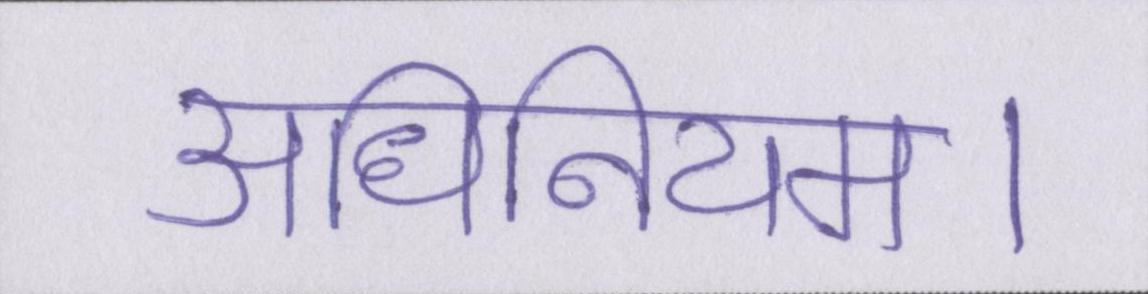 अधिनियम।